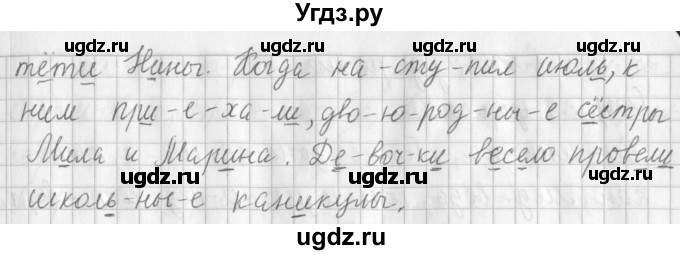 Угдз.ру
ugdz.ru ugdz.ru ugdz.ru
тёти Нины. Когда на-сту-пил июль, к
ugdz.ru ugdz.ru
ним при-е-ха-ли, дво-ю-род-ны-е сёстры
ugdz.ru ugdz.ru ugdz.ru
Мила и Марина. Де-воч-ки весело провели
ugdz.ru ugdz.ru
школь-ны-е каникулы.
ugdz.ru